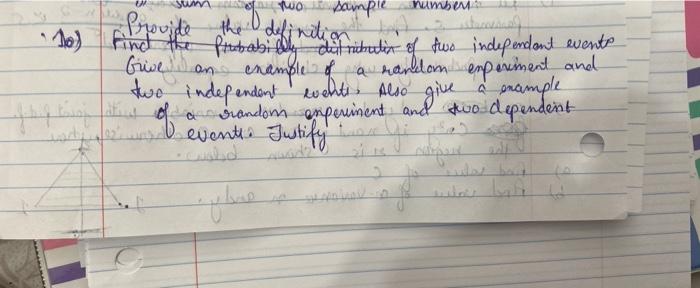 sum of two sample numbers.
Provide the definition
10) Find the Probability distribution of two independent events
Give an example of a random experiment and
two independent events. Also give a example
of a random experiment and two dependent
events. Justify